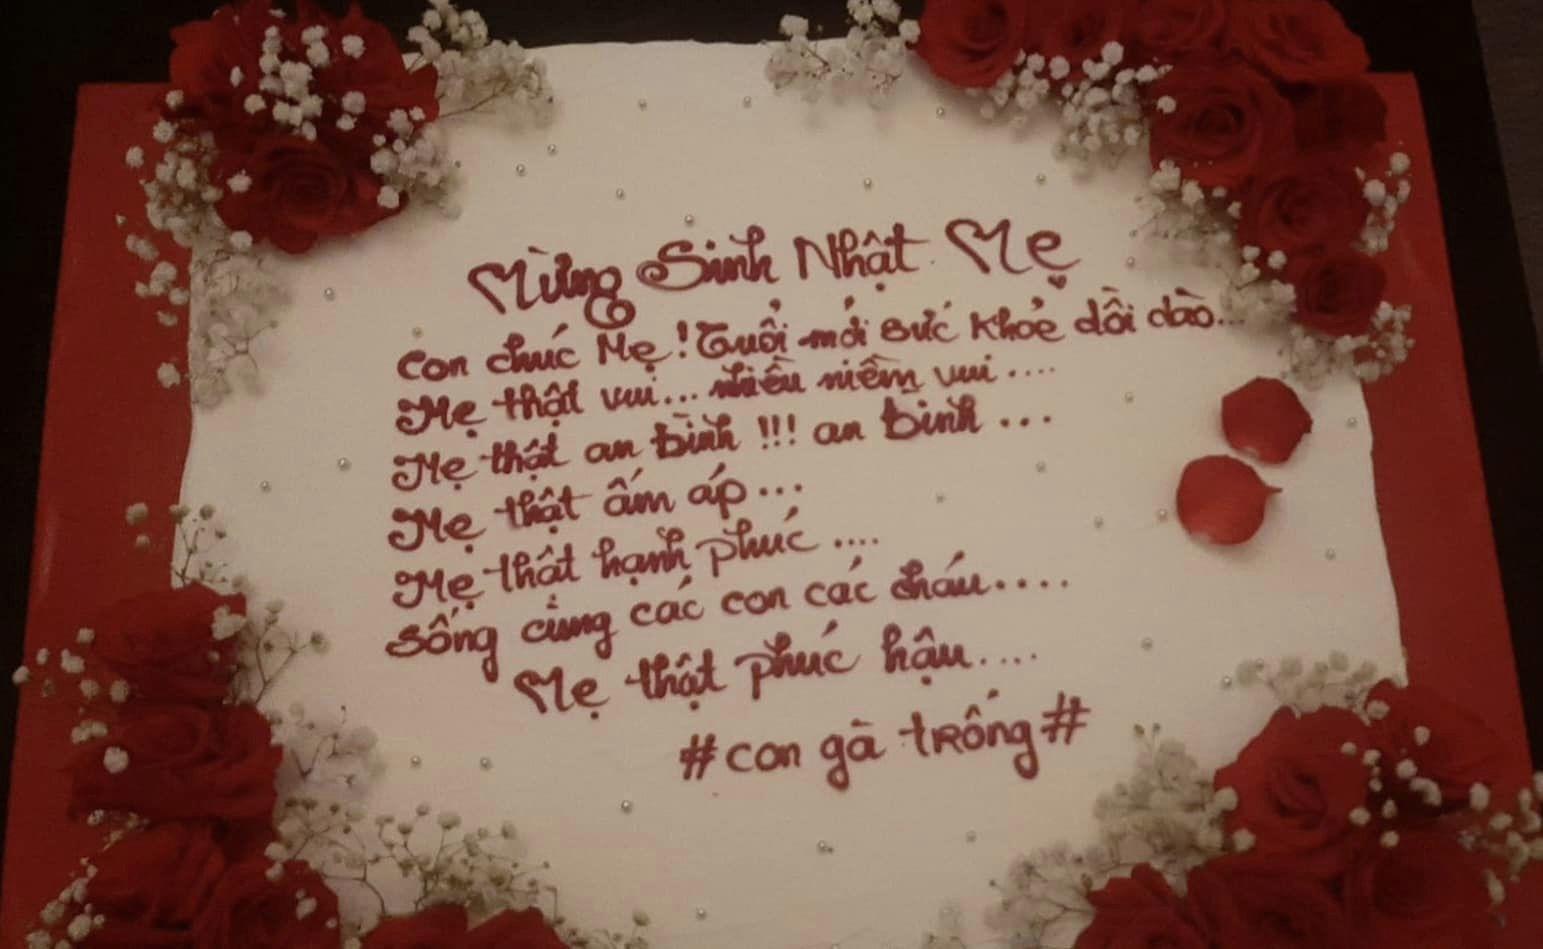 Mừng Sinh Nhật Mẹ
con chúc Mẹ! Tuổi mới sức khỏe dồi dào...
Mẹ thật vui... nhiều niềm vui....
Mẹ thật an bình !!! an bình ...
Mẹ thật ấm áp...
Mẹ thật hạnh phúc ....
sống cùng các con các cháu....
Mẹ thật phúc hậu....
#con gà trống#